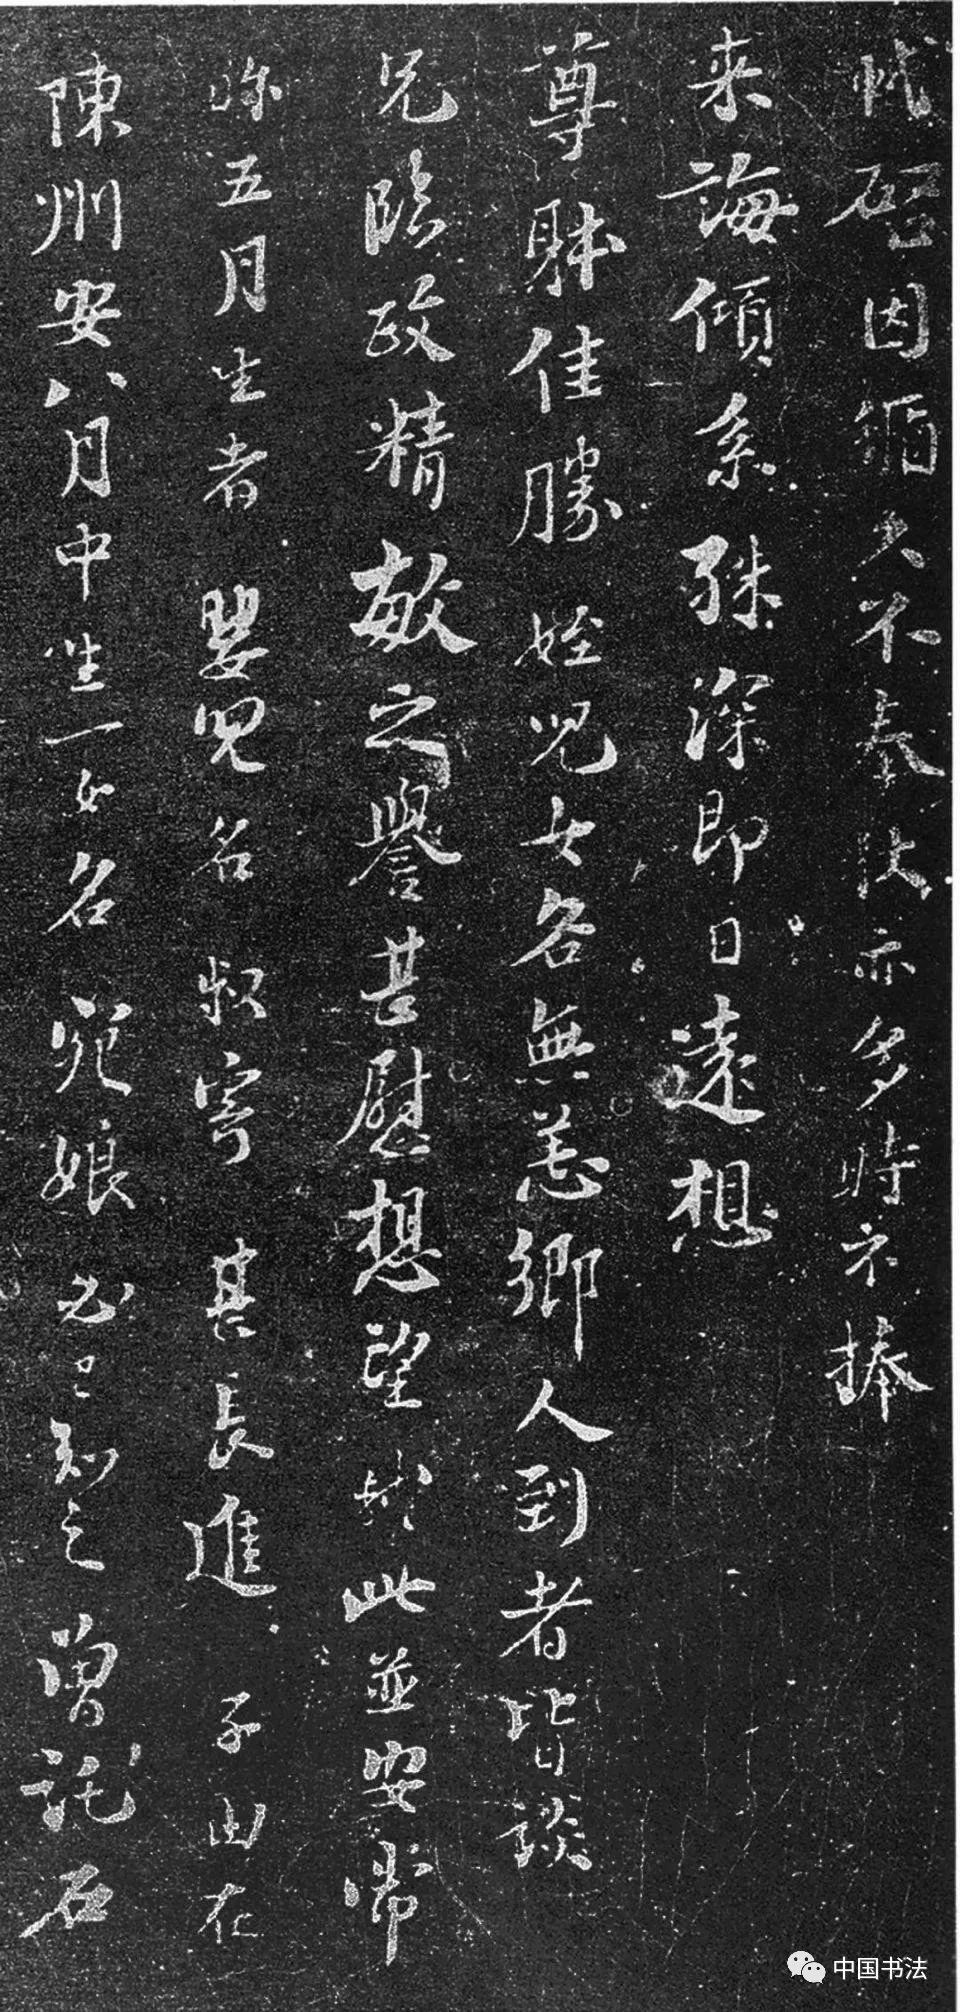 軾啓因循久不奉狀亦多時不捧
来誨傾系殊深即日遠想
尊體佳勝姪兒女各無恙鄉人到者皆談
兄臨政精敏之譽甚慰想望軾此並安常
五月生者嬰兒名叔寄甚長進子由在
陳州安八月中生一女名宛娘必已知之曾託石
中国书法